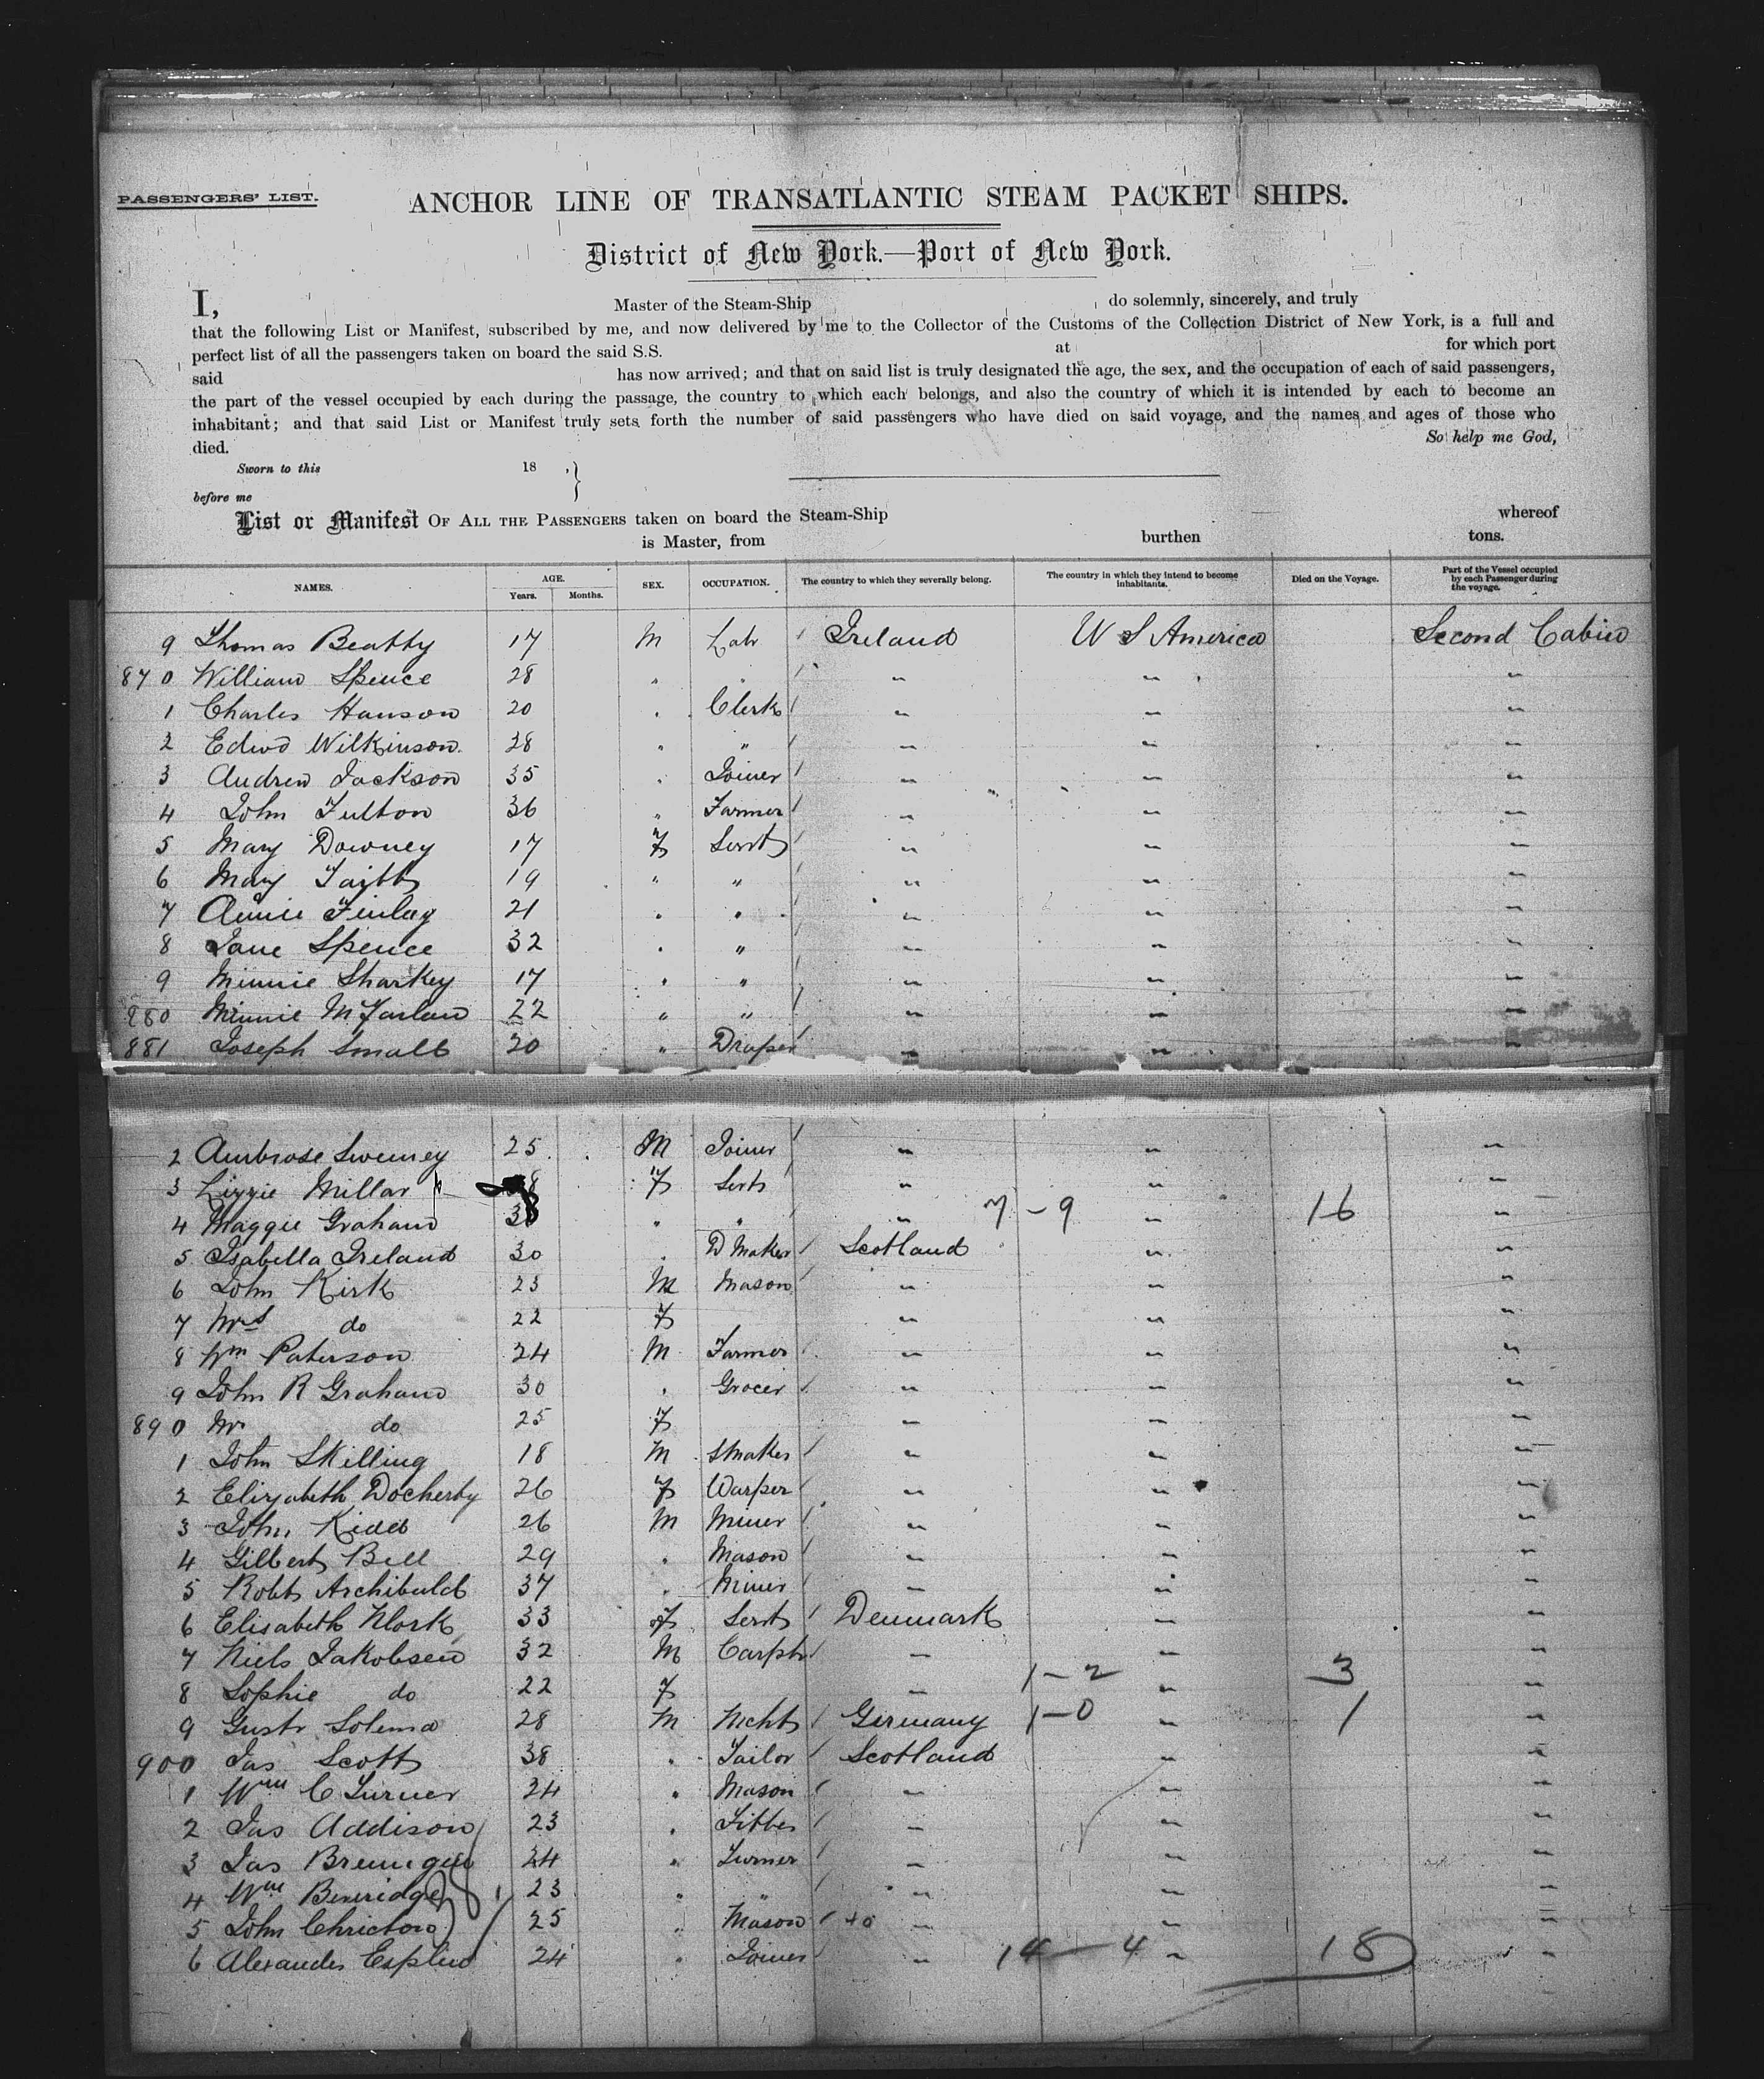 PASSENGERS' LIST.
ANCHOR LINE OF TRANSATLANTIC STEAM PACKET SHIPS.
District of New York.—Port of New York.
I, Master of the Steam-Ship do solemnly, sincerely, and truly
that the following List or Manifest, subscribed by me, and now delivered by me to the Collector of the Customs of the Collection District of New York, is a full and
perfect list of all the passengers taken on board the said S.S. at for which port
said has now arrived; and that on said list is truly designated the age, the sex, and the occupation of each of said passengers,
the part of the vessel occupied by each during the passage, the country to which each belongs, and also the country of which it is intended by each to become an
inhabitant; and that said List or Manifest truly sets forth the number of said passengers who have died on said voyage, and the names and ages of those who
died. So help me God,
Sworn to this 18 ,}
before me
List or Manifest OF ALL THE PASSENGERS taken on board the Steam-Ship whereof
is Master, from burthen tons.
NAMES. AGE. Years. Months. SEX. OCCUPATION. The country to which they severally belong. The country in which they intend to become inhabitants. Died on the Voyage. Part of the Vessel occupied by each Passenger during the voyage.
9 Thomas Beatty 17 M Labr / Ireland U S America Second Cabin
870 William Spence 28 " " / " " "
1 Charles Hanson 20 " Clerk / " " "
2 Edwd Wilkinson 28 " " / " " "
3 Andrew Jackson 35 " Joiner / " " "
4 John Fulton 36 " Farmer / " " "
5 Mary Downey 17 F Servt / " " "
6 Mary 19 " " / " " "
7 Annie Finlay 21 " " / " " "
8 Jane Spence 32 " " / " " "
9 Minnie Sharkey 17 " " / " " "
880 Minnie McFarlan 22 " " / " " "
881 Joseph Small 20 " Draper / " " "
2 Ambrose Sweeney 25 M Joiner / " " "
3 Lizzie Millar F Servt " " "
4 Maggie Graham " " / " 7 - 9 " 16 "
5 Isabella Ireland 30 " D Maker / Scotland " "
6 John Kirk 23 M Mason / " " "
7 Mrs do 22 F " " "
8 Wm Paterson 24 M Farmer / " " "
9 John R Graham 30 " Grocer / " " "
890 Mrs do 25 F " " "
1 John Skilling 18 M SMaker / " " "
2 Elizabeth Docherty 26 F Warper / " " "
3 John Kidd 26 M Miner / " " "
4 Gilbert Bell 29 " Mason / " " "
5 Robt Archibald 37 " Miner / " " "
6 Elisabeth 33 F Servt / Denmark " "
7 Niels Jakobsen 32 M Carptr / " " "
8 Sophie do 22 F " 1 - 2 " 3 "
9 Gustv 28 M / Germany 1 - 0 " 1 "
900 Jas Scott 38 " Tailor / Scotland " "
1 Wm C Turner 24 " Mason / " " "
2 Jas Addison 23 " Fitter / " " "
3 Jas 24 " Turner / " " "
4 Wm Beveridge 23 " " / " " "
5 John Chricton 25 " Mason / " " "
6 Alexander Esplin 24 " Joiner / " 14 - 4 " 18 "